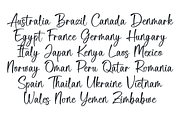 Australia Brazil Canada Denmark
Egypt France Germany Hungary
Italy Japan Kenya Laos Mexico
Norway Oman Peru Qatar Romania
Spain Thailan Ukraine Vietnam
Wales None Yemen Zimbabwe